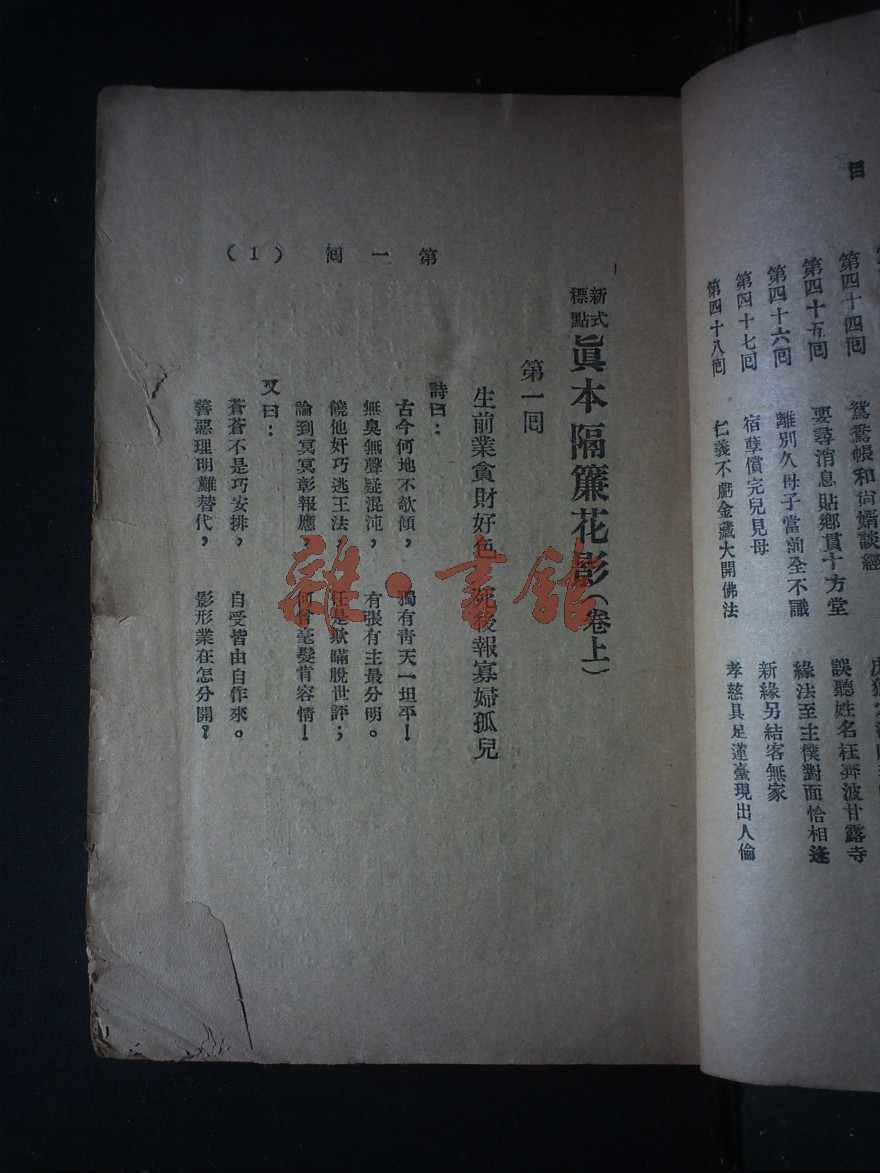 目
第四十四回 鴛鴦帳和尚婿談經
第四十五回 要尋消息貼鄉貫十方堂 誤聽姓名枉奔波甘露寺
第四十六回 離別久母子當前全不識 緣法至主僕對面恰相逢
第四十七回 宿孽償完兒見母 新緣另結客無家
第四十八回 仁義不虧金藏大開佛法 孝慈具足蓮臺現出人倫
第一回 (1)
新式標點 眞本隔簾花影(卷上)
第一回
生前業貪財好色 死後報寡婦孤兒
詩曰：
古今何地不欹傾， 獨有青天一坦平！
無臭無聲疑混沌， 有張有主最分明。
饒他奸巧逃王法， 任是欺瞞脫世評；
論到冥冥彰報應， 何曾毫髮肯容情！
又曰：
蒼蒼不是巧安排， 自受皆由自作來。
善惡理明難替代， 影形業在怎分開？
雜·書館